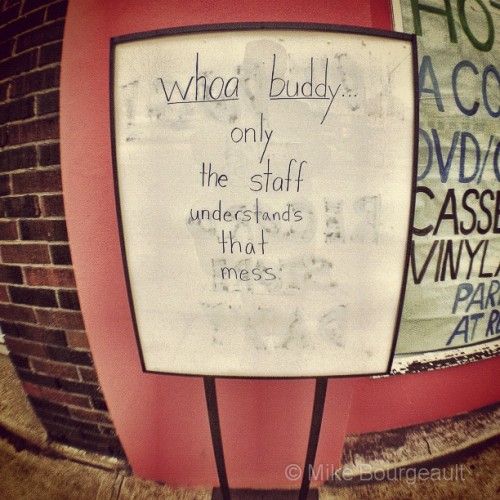 whoa buddy...
only
the staff
understands
that
mess.
HO
A CO
DVD/
CASSE
VINYL
PAR
AT R
© Mike Bourgeault